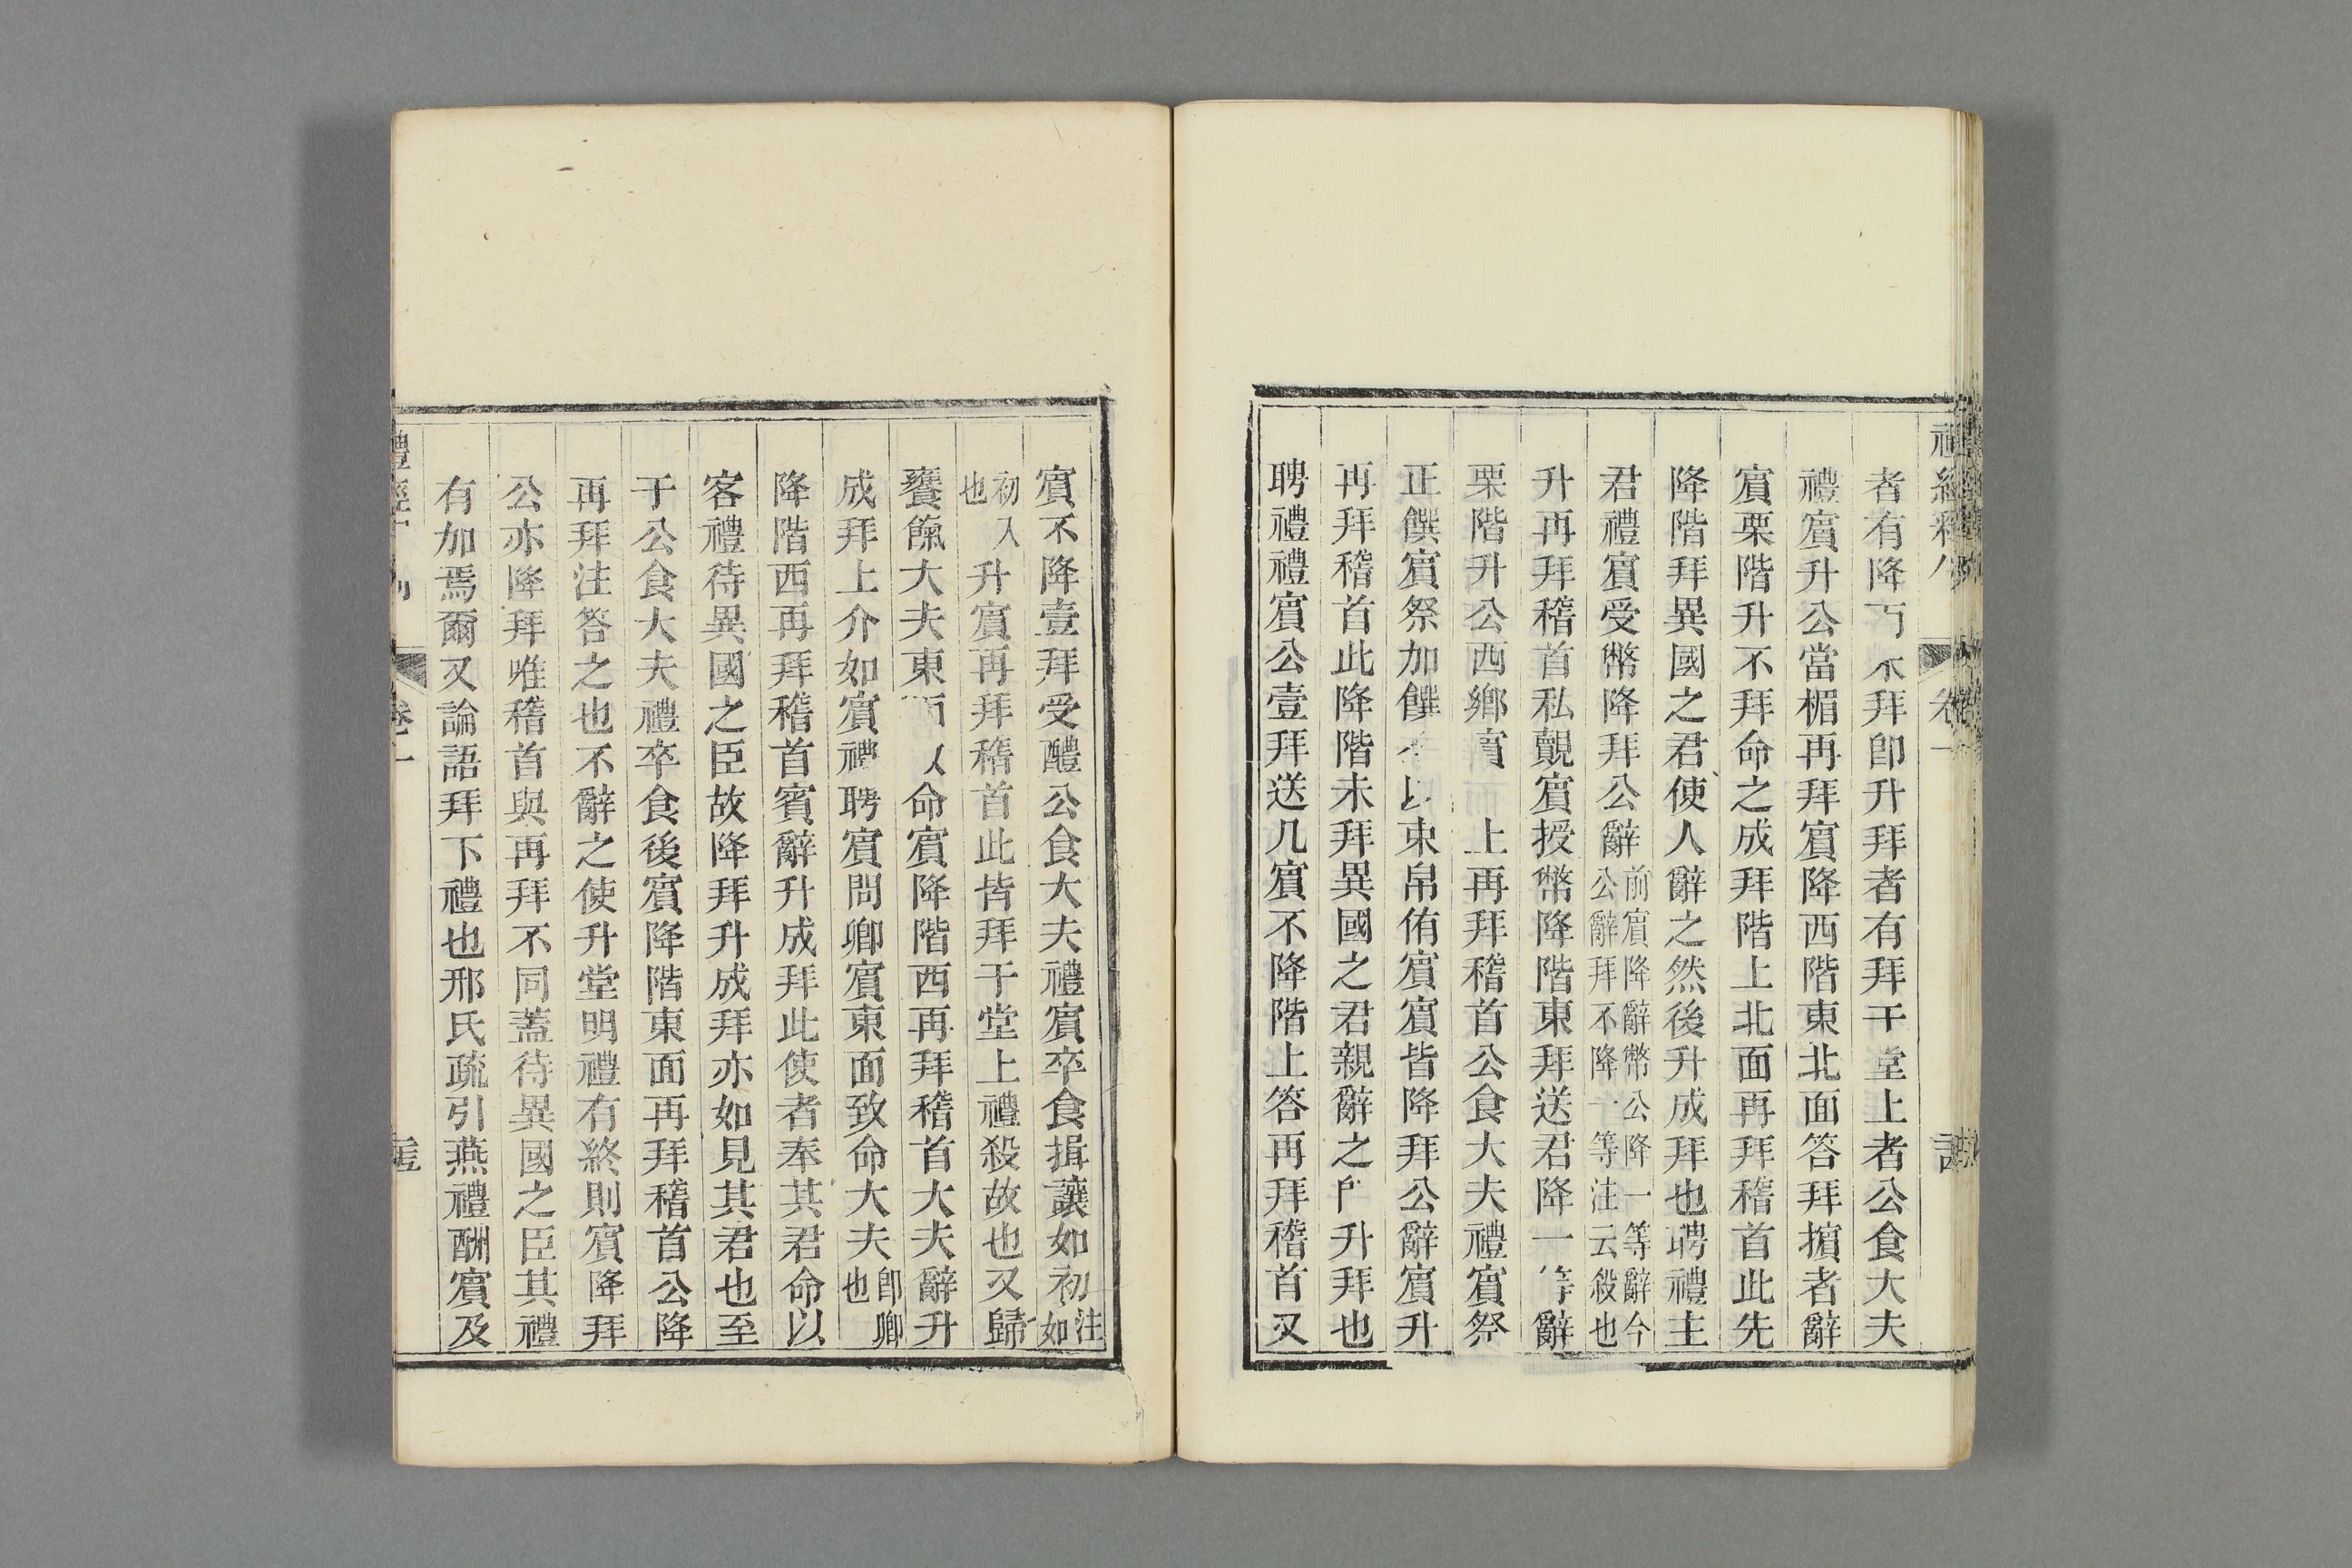 者有降而不拜即升拜者有拜于堂上者公食大夫
禮賔升公當楣再拜賔降西階東北面答拜擯者辭
賔栗階升不拜命之成拜階上北面再拜稽首此先
降階拜異國之君使人辭之然後升成拜也聘禮主
君禮賔受幣降拜公辭前賔降辭幣公降一等辭今公辭拜不降一等注云殺也
升再拜稽首私覿賔授幣降階東拜送君降一等辭
栗階升公西鄉賔 上再拜稽首公食大夫禮賔祭
正饌賔祭加饌 以束帛侑賔賔皆降拜公辭賔升
再拜稽首此降階未拜異國之君親辭之即升拜也
聘禮禮賔公壹拜送几賔不降階上答再拜稽首又
賔不降壹拜受醴公食大夫禮賔卒食揖讓如初注如
初入也升賔再拜稽首此皆拜于堂上禮殺故也又歸
饔餼大夫東面 命賔降階西再拜稽首大夫辭升
成拜上介如賔禮聘賔問卿賔東面致命大夫即卿也
降階西再拜稽首賓辭升成拜此使者奉其君命以
客禮待異國之臣故降拜升成拜亦如見其君也至
于公食大夫禮卒食後賔降階東面再拜稽首公降
再拜注答之也不辭之使升堂明禮有終則賔降拜
公亦降拜唯稽首與再拜不同蓋待異國之臣其禮
有加焉爾又論語拜下禮也邢氏疏引燕禮酬賔及